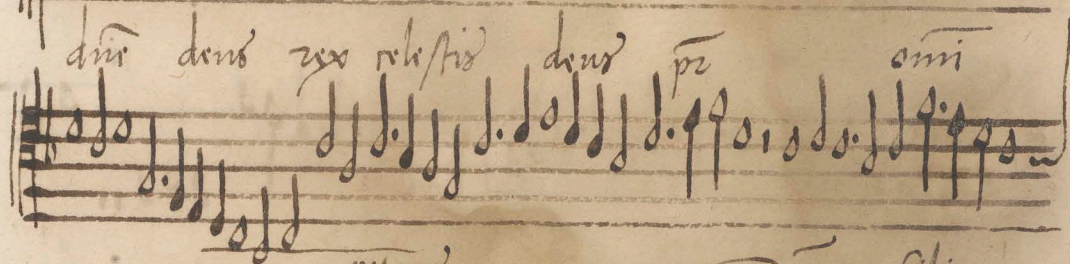 dn̄e deus rex celestis deus pr̄ omni